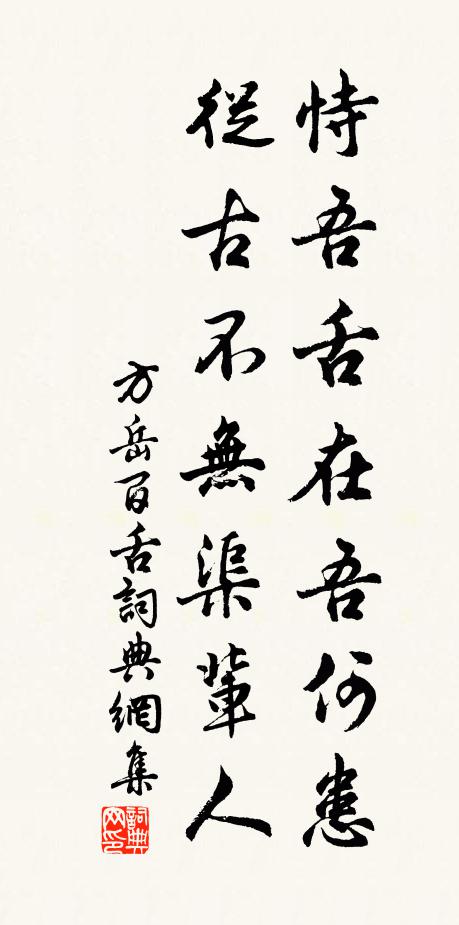 恃吾舌在吾何患
從古不無渠輩人
方岳百舌詞典網集
詞典网印